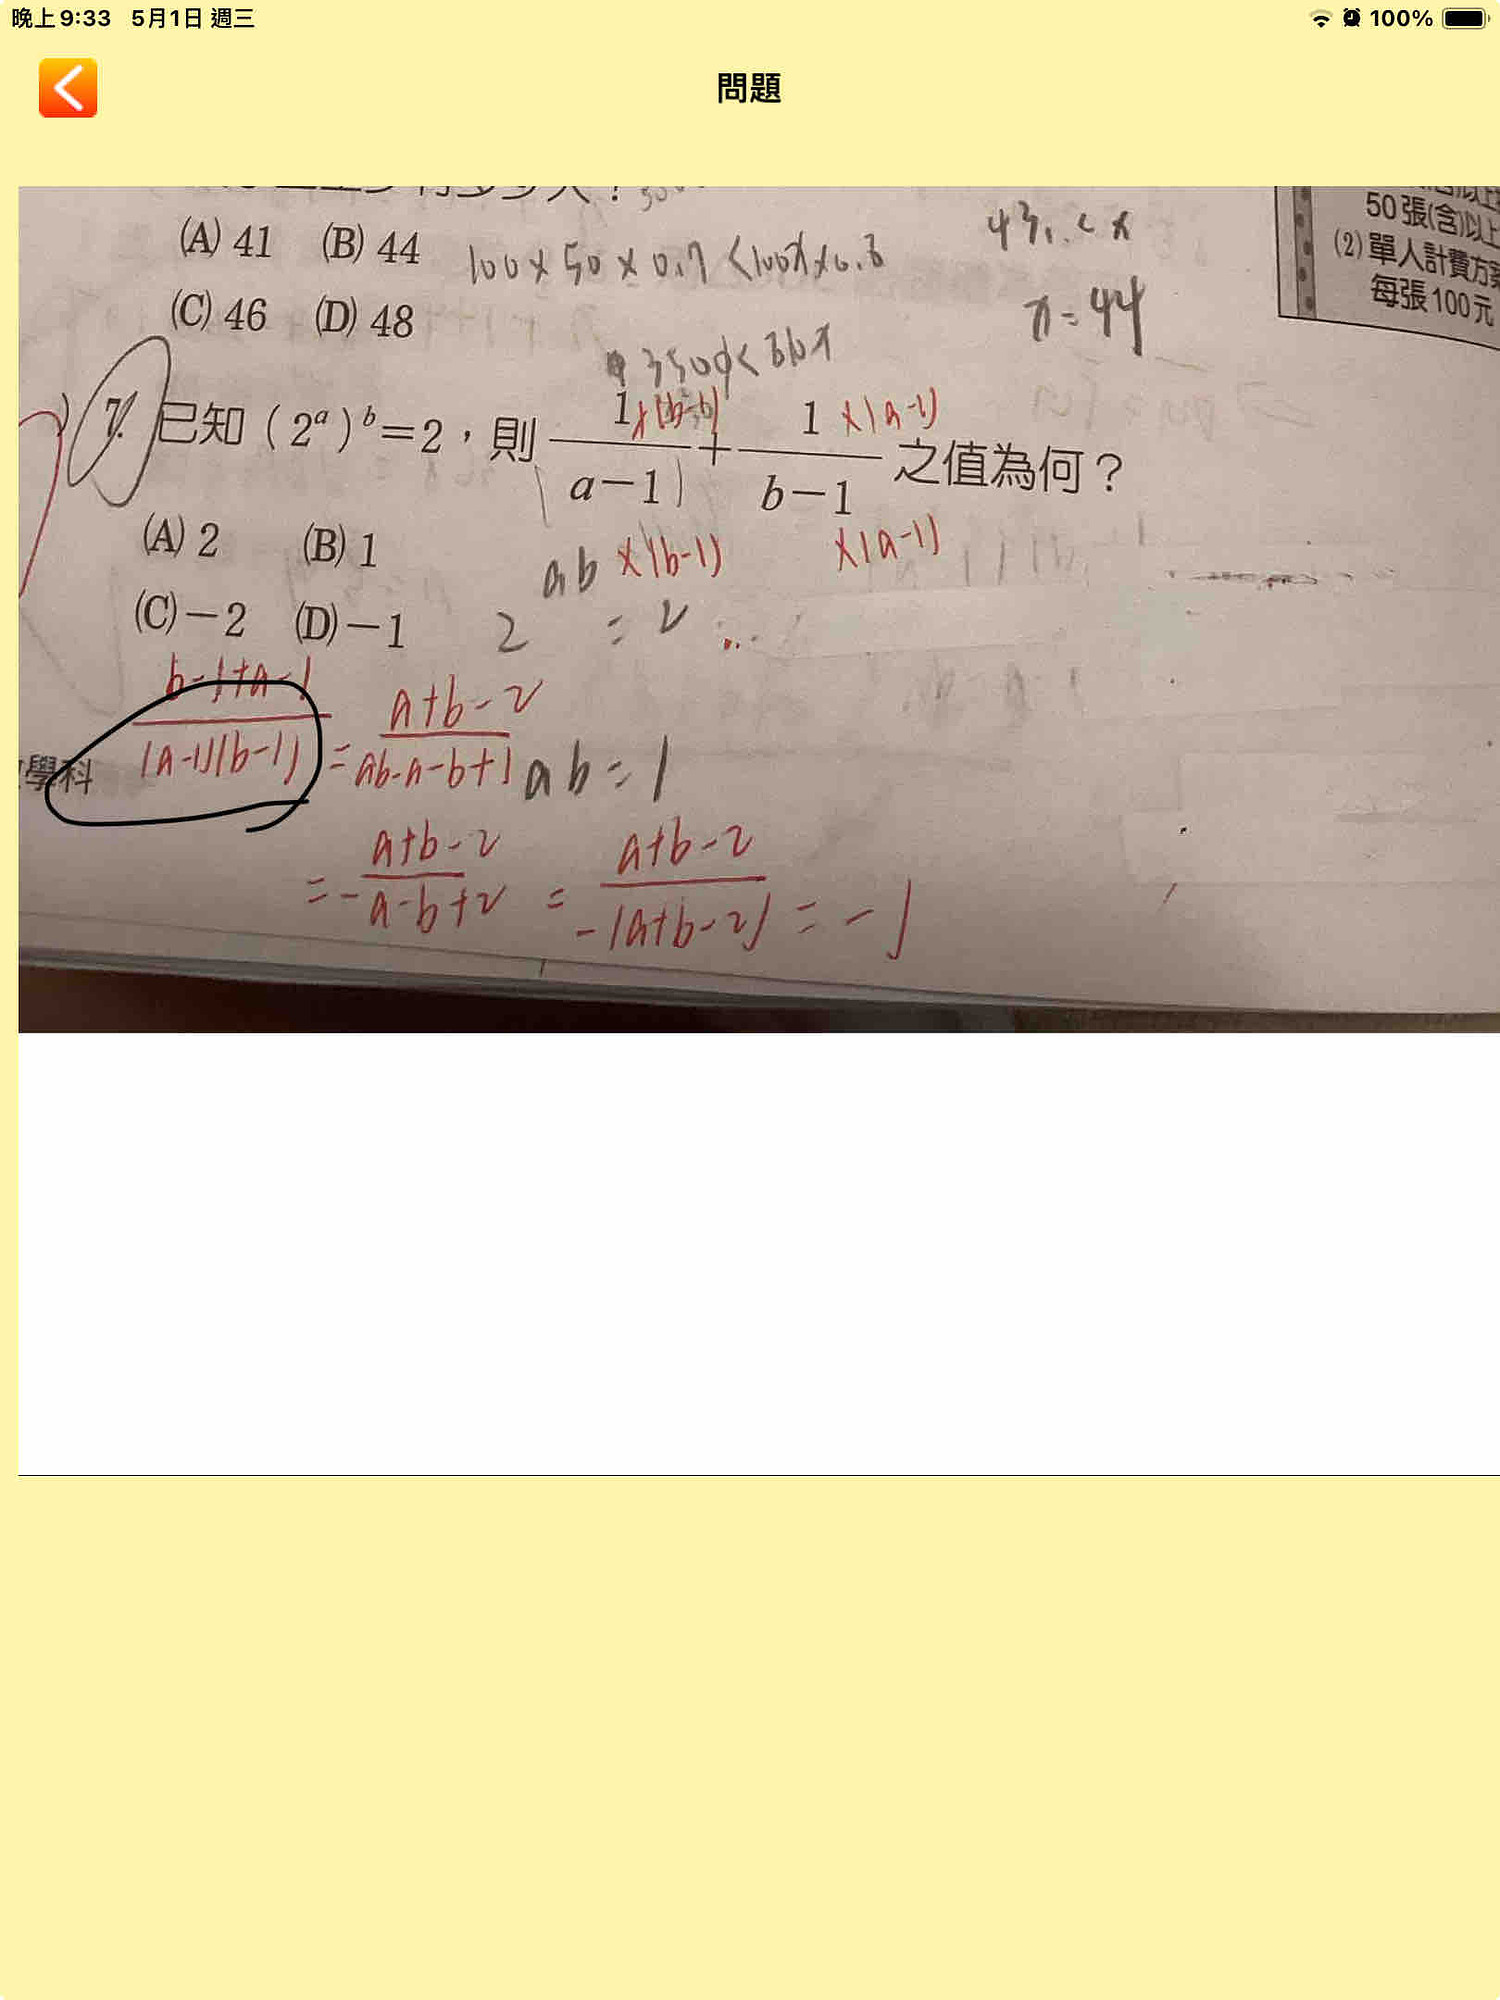 晚上9:33 5月1日 週三 100%
問題
(A) 41 (B) 44
100×50×0.7<100x×0.8
43.. < x
50張(含)以上
(2)單人計費方案
每張100元
(C) 46 (D) 48
x=44
7. 已知(2^a)^b=2,則 1/(a−1) + 1/(b−1) 之值為何?
×(b-1) ×(a-1)
(A) 2 (B) 1
ab ×(b-1) ×(a-1)
(C) −2 (D) −1
2 = 2
(b-1+a-1)/((a-1)(b-1)) = (a+b-2)/(ab-a-b+1) ab=1
學科
= (a+b-2)/(-a-b+2) = (a+b-2)/(-(a+b-2)) = -1